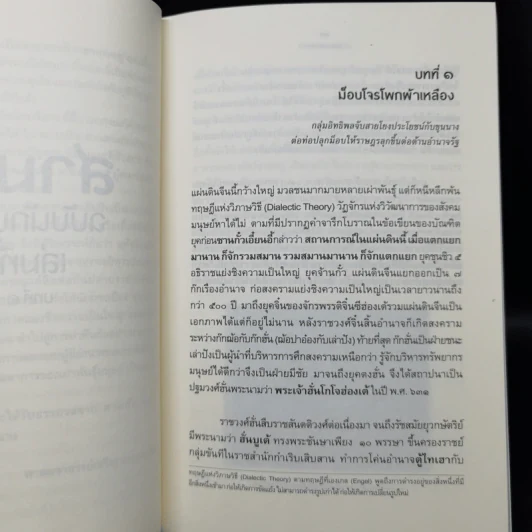 บทที่ ๑
ม็อบโจรโพกผ้าเหลือง
กลุ่มอิทธิพลจับสายโยงประโยชน์กับขุนนาง
ต่อท่อปลุกม็อบให้ราษฎรลุกขึ้นต่อต้านอำนาจรัฐ
แผ่นดินจีนนี้กว้างใหญ่ มวลชนมากมายหลายเผ่าพันธุ์ แต่ก็หนีหลีกพ้น
ทฤษฎีแห่งวิภาษวิธี (Dialectic Theory) วัฏจักรแห่งวิวัฒนาการของสังคม
มนุษย์หาได้ไม่ ตามที่มีปรากฏคำจารึกโบราณในข้อเขียนของบัณฑิต
ยุคก่อนซานกั๋วเอี้ยนอี้กล่าวว่า สถานการณ์ในแผ่นดินนี้ เมื่อแตกแยก
มานาน ก็จักรวมสมาน รวมสมานมานาน ก็จักแตกแยก ยุคชุนชิว ๕
อธิราชแย่งชิงความเป็นใหญ่ ยุคจ้านกั๋ว แผ่นดินจีนแยกออกเป็น ๗
ก๊กเรืองอำนาจ ก่อสงครามแย่งชิงความเป็นใหญ่เป็นเวลายาวนานถึง
กว่า ๕๐๐ ปี มาถึงยุคจิ๋นของจักรพรรดิจิ๋นซีฮ่องเต้รวมแผ่นดินจีนเป็น
เอกภาพได้แต่ก็อยู่ไม่นาน หลังราชวงศ์จิ๋นสิ้นอำนาจก็เกิดสงคราม
ระหว่างก๊กฌ้อกับก๊กฮั่น (ฌ้อปาอ๋องกับเล่าปัง) ท้ายที่สุด ก๊กฮั่นเป็นฝ่ายชนะ
เล่าปังเป็นผู้นำที่บริหารการศึกสงครามเหนือกว่า รู้จักบริหารทรัพยากร
มนุษย์ได้ดีกว่าจึงเป็นฝ่ายมีชัย มาจนถึงยุคตงฮั่น จึงได้สถาปนาเป็น
ปฐมวงศ์ฮั่นพระนามว่า พระเจ้าฮั่นโกโจฮ่องเต้ ในปี พ.ศ. ๖๓๑
ราชวงศ์ฮั่นสืบราชสันตติวงศ์ต่อเนื่องมา จนถึงรัชสมัยยุวกษัตริย์
มีพระนามว่า ฮั่นบูเต้ ทรงพระชันษาเพียง ๑๐ พรรษา ขึ้นครองราชย์
กลุ่มขันทีในราชสำนักกำเริบเสิบสาน ทำการโค่นอำนาจตู้ไทเฮากับ
ทฤษฎีแห่งวิภาษวิธี (Dialectic Theory) ตามทฤษฎีที่เองเกล (Engel) พูดถึงการดำรงอยู่ของสิ่งหนึ่งที่มี